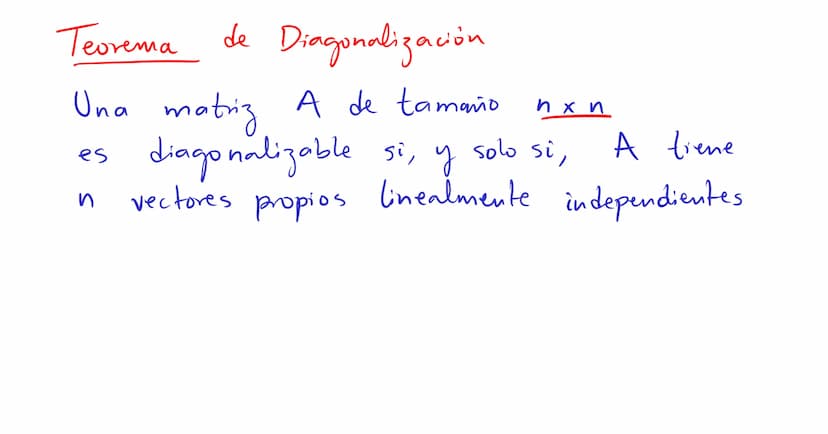 Teorema de Diagonalización
Una matriz A de tamaño n x n
es diagonalizable si, y solo si, A tiene
n vectores propios linealmente independientes